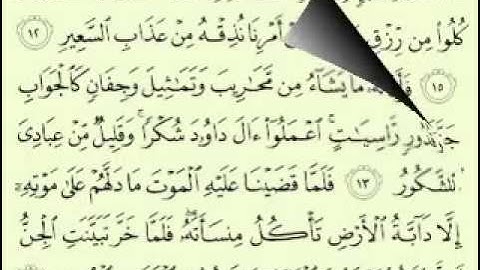 كُلُوا۟ مِن رِّزْقِ أَمْرِنَا نُذِقْهُ مِنْ عَذَابِ ٱلسَّعِيرِ ١٢
١٥ مَا يَشَآءُ مِن مَّحَٰرِيبَ وَتَمَٰثِيلَ وَجِفَانٍ كَٱلْجَوَابِ
رَّاسِيَٰتٍ ۚ ٱعْمَلُوٓا۟ ءَالَ دَاوُۥدَ شُكْرًا ۚ وَقَلِيلٌ مِّنْ عِبَادِىَ
ٱلشَّكُورُ ١٣ فَلَمَّا قَضَيْنَا عَلَيْهِ ٱلْمَوْتَ مَا دَلَّهُمْ عَلَىٰ مَوْتِهِۦٓ
إِلَّا دَآبَّةُ ٱلْأَرْضِ تَأْكُلُ مِنسَأَتَهُۥ ۖ فَلَمَّا خَرَّ تَبَيَّنَتِ ٱلْجِنُّ